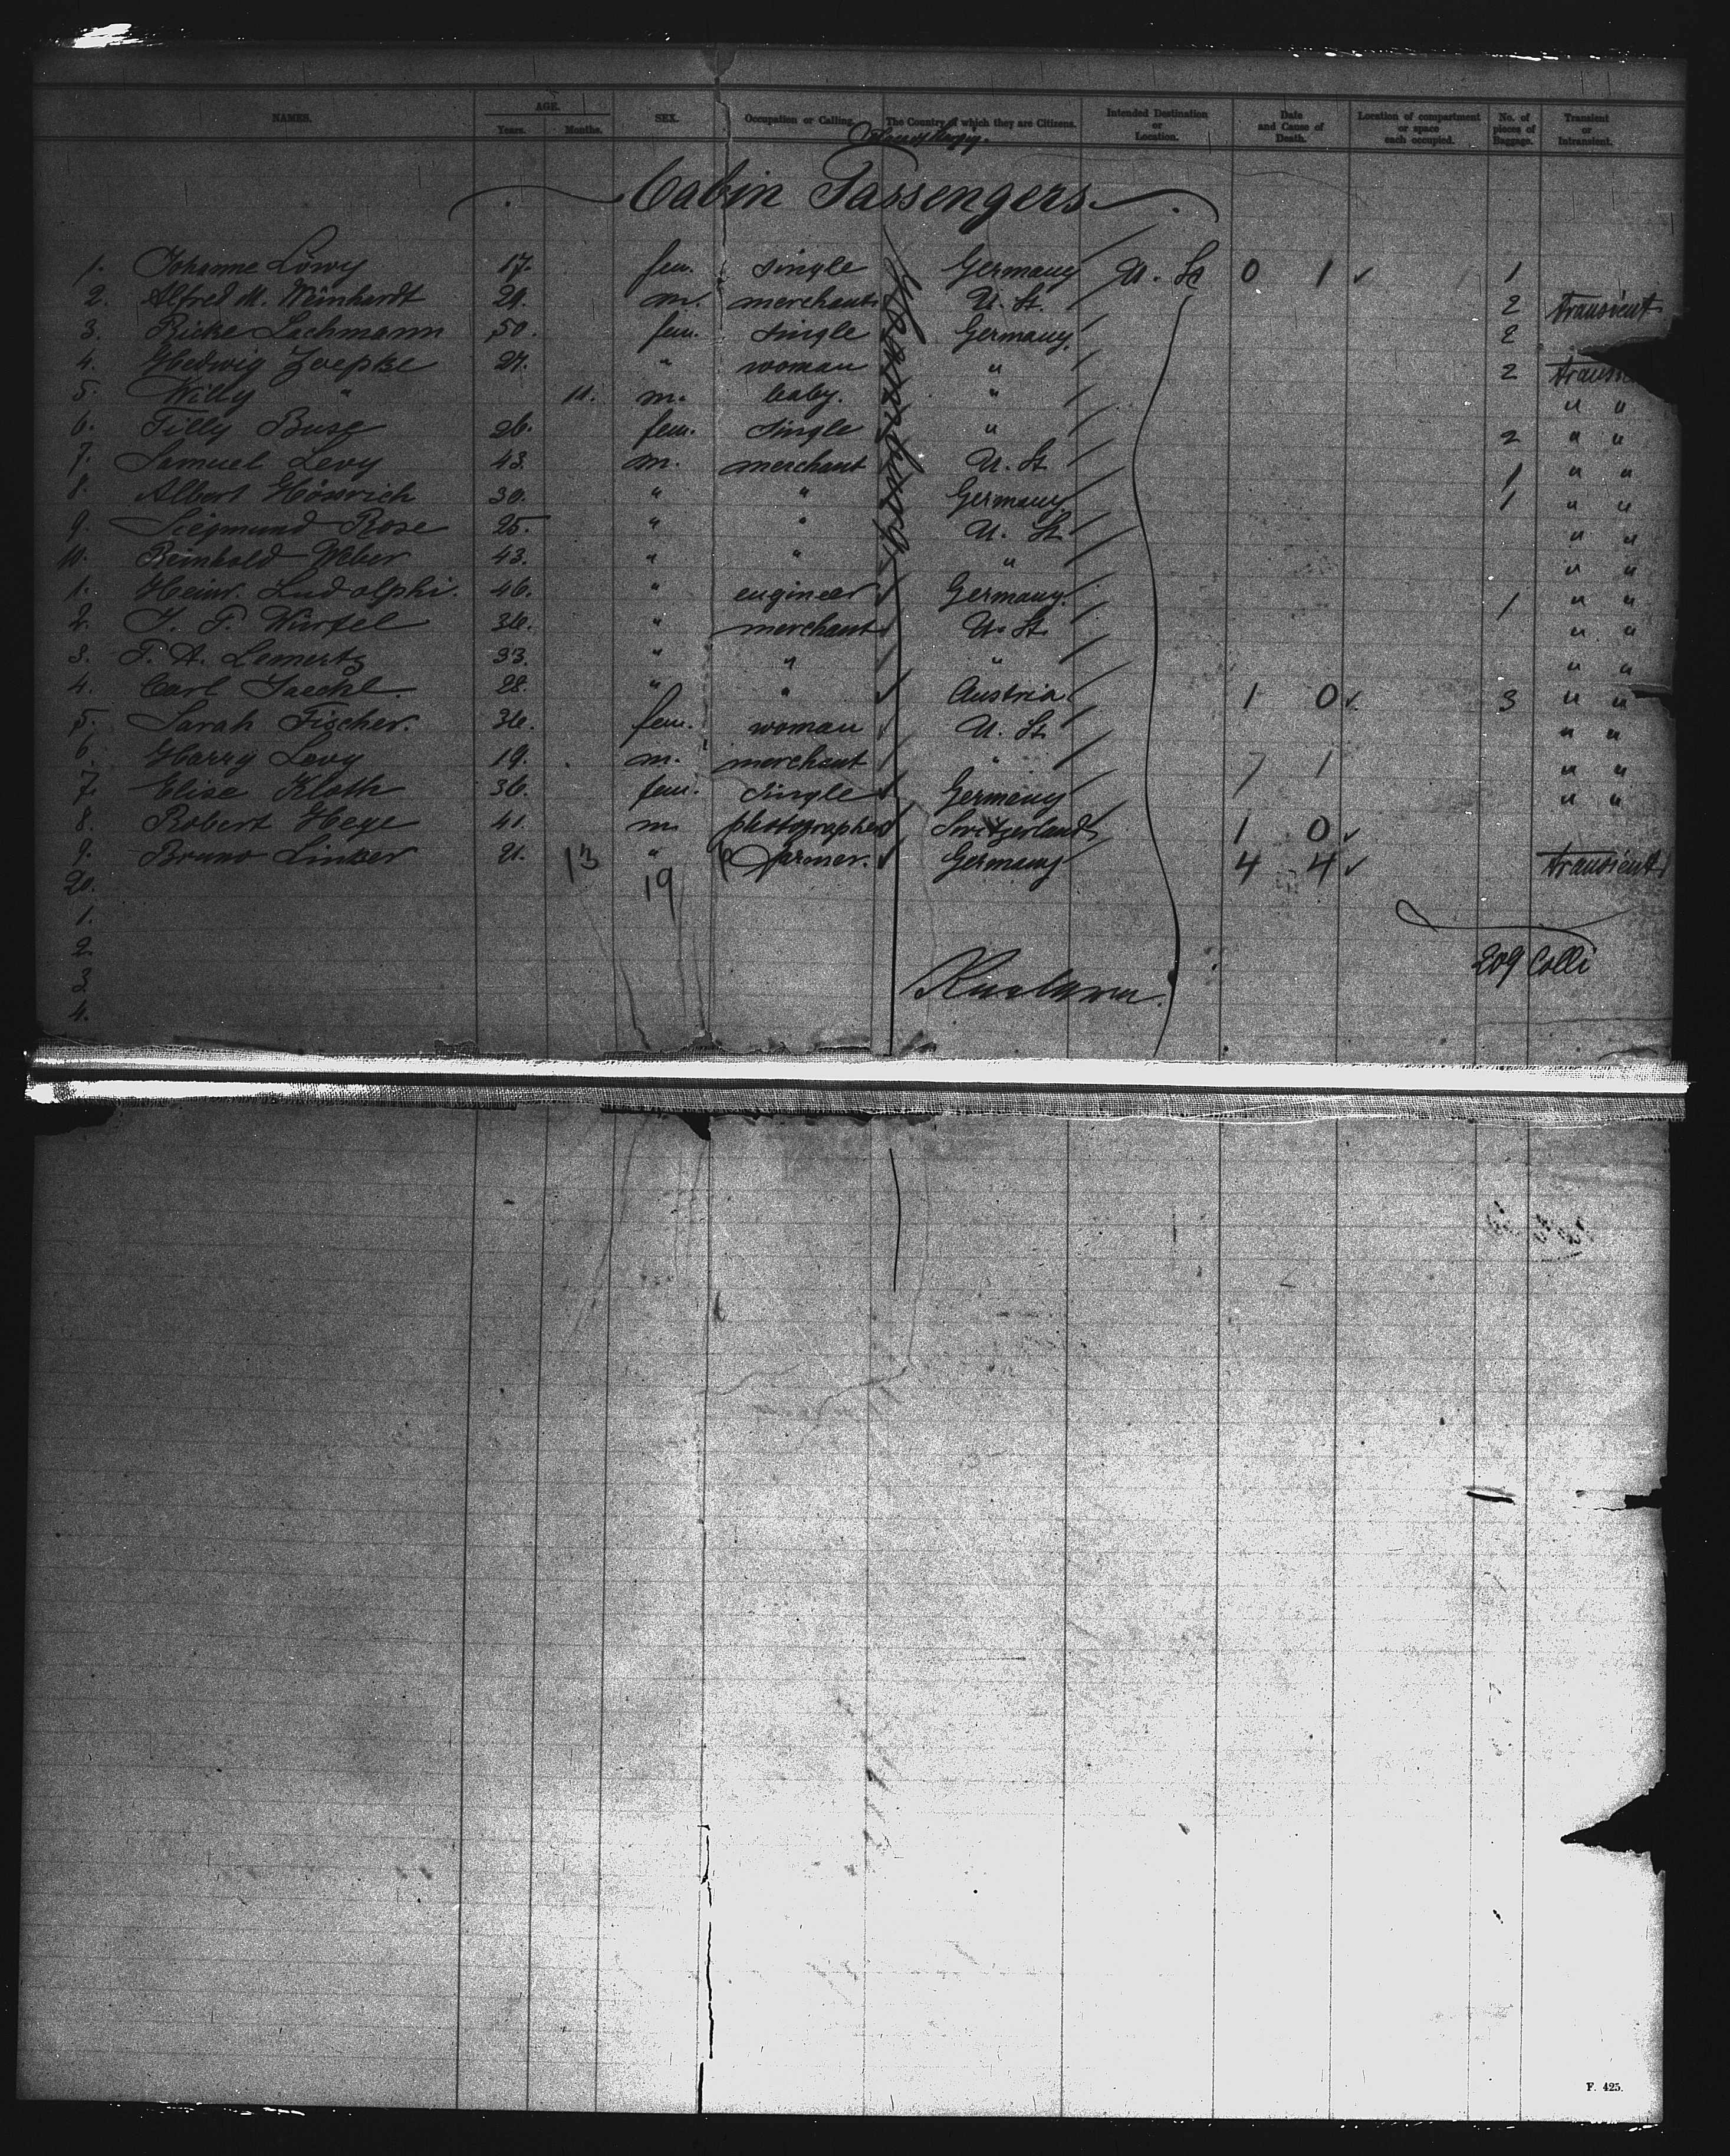 NAMES. AGE. SEX. Occupation or Calling. The Country of which they are Citizens. Intended Destination or Location. Date and Cause of Death. Location of compartment or space each occupied. No. of pieces of Baggage. Transient or Intransient.
Years. Months.
Cabin Passengers
1. Johanne Löwy 17. fem. single Germany U. St. 0 1 ✓ 1
2. Alfred M. Weinhardt 29. m. merchant U. St. 2 Transient
3. Ricke Lachmann 50. fem. single Germany. 2
4. Hedwig Zoepke 27. " woman " 2
5. Willy " 11. m. baby. " " "
6. Tilly Buse 26. fem. single " 2 " "
7. Samuel Levy 43. m. merchant U. St. 1 " "
8. Albert 30. " " Germany 1 " "
9. Siegmund Rose 25. " " U. St. " "
10. Reinhold Weber 43. " " " " "
1. Heinr. Ludolphi. 46. " engineer Germany. 1 " "
2. Würfel 36. " merchant U. St. " "
3. Lemertz 33. " " " " "
4. Carl Jaeckl. 28. " " Austria 1 0 ✓ 3 " "
5. Sarah Fischer. 36. fem. woman U. St. " "
6. Harry Levy 19. m. merchant " 7 1 " "
7. Elise Kloth 36. fem. single Germany " "
8. Robert Hege 41. m. photographer Switzerland 1 0 ✓
9. Bruno Linker 21. 13 " farmer. Germany 4 4 ✓ Transient
20. 19
1.
2. 209 Colli
3
4.
F. 425.